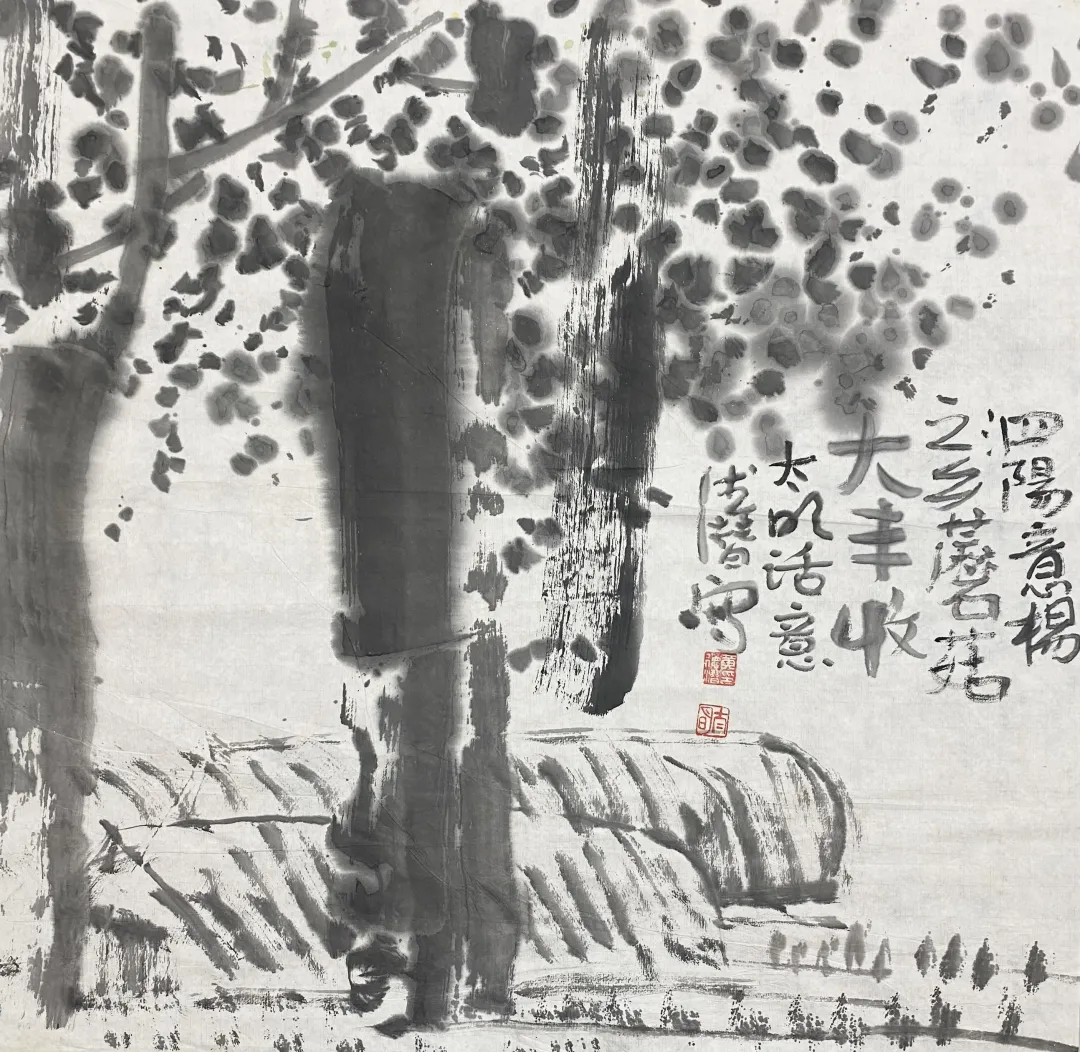 泗陽意楊
之乡蘑菇
大丰收
太明话意
德智写